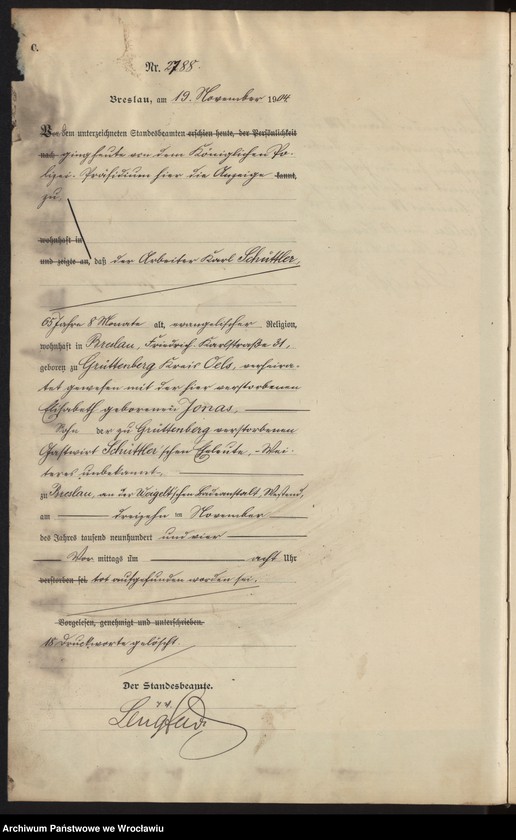 C.
Nr. 2788.
Breslau, am 19. November 1904
Vor dem unterzeichneten Standesbeamten erschien heute, der Persönlichkeit
nach ging heute von dem Königlichen Po-
lizei-Präsidium hier die Anzeige kannt,
zu
wohnhaft in
und zeigte an, daß der Arbeiter Karl Schüttler,
65 Jahre 8 Monate alt, evangelischer Religion,
wohnhaft in Breslau, Friedrich Karlstraße 31,
geboren zu Grüttenberg Kreis Oels, verheira-
tet gewesen mit der hier verstorbenen
Elisabeth geborenen Jonas,
Sohn der zu Grüttenberg verstorbenen
Gastwirt Schüttler'schen Eheleute, Wei-
teres unbekannt,
zu Breslau, an der Weigelt'schen Badeanstalt, Westend,
am dreizehn ten November
des Jahres tausend neunhundert und vier
Vor mittags um acht Uhr
verstorben sei. tot aufgefunden worden sei.
Vorgelesen, genehmigt und unterschrieben.
18 Druckworte gelöscht.
Der Standesbeamte.
Archiwum Państwowe we Wrocławiu